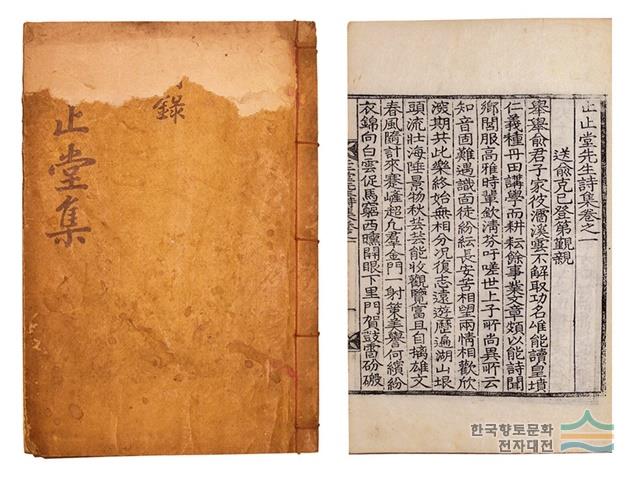 錄
止堂集
止止堂先生詩集卷之一
送兪克己登第覲親
擧擧兪君子家㵢溪雲不解取功名唯能讀皇墳
仁義種丹田講學而耕耘餘事業文章頗以能詩聞
鄉閭服高雅時輩欽淸芬吁嗟世上子所尙異所云
知音固難遇識面徒紛紜長安苦相望兩情相歡欣
期共此樂終始無相分况復志遠遊歷遍湖山垠
頭流壯海陲景物秋芸芸能收觀覽富且自摛雄文
春風隨計來蹇嵼超凡羣金門一射策美譽何繽紛
衣錦向白雲促馬窮西曛開眼下里門賀鼓雷砏磤
한국향토문화
전자대전